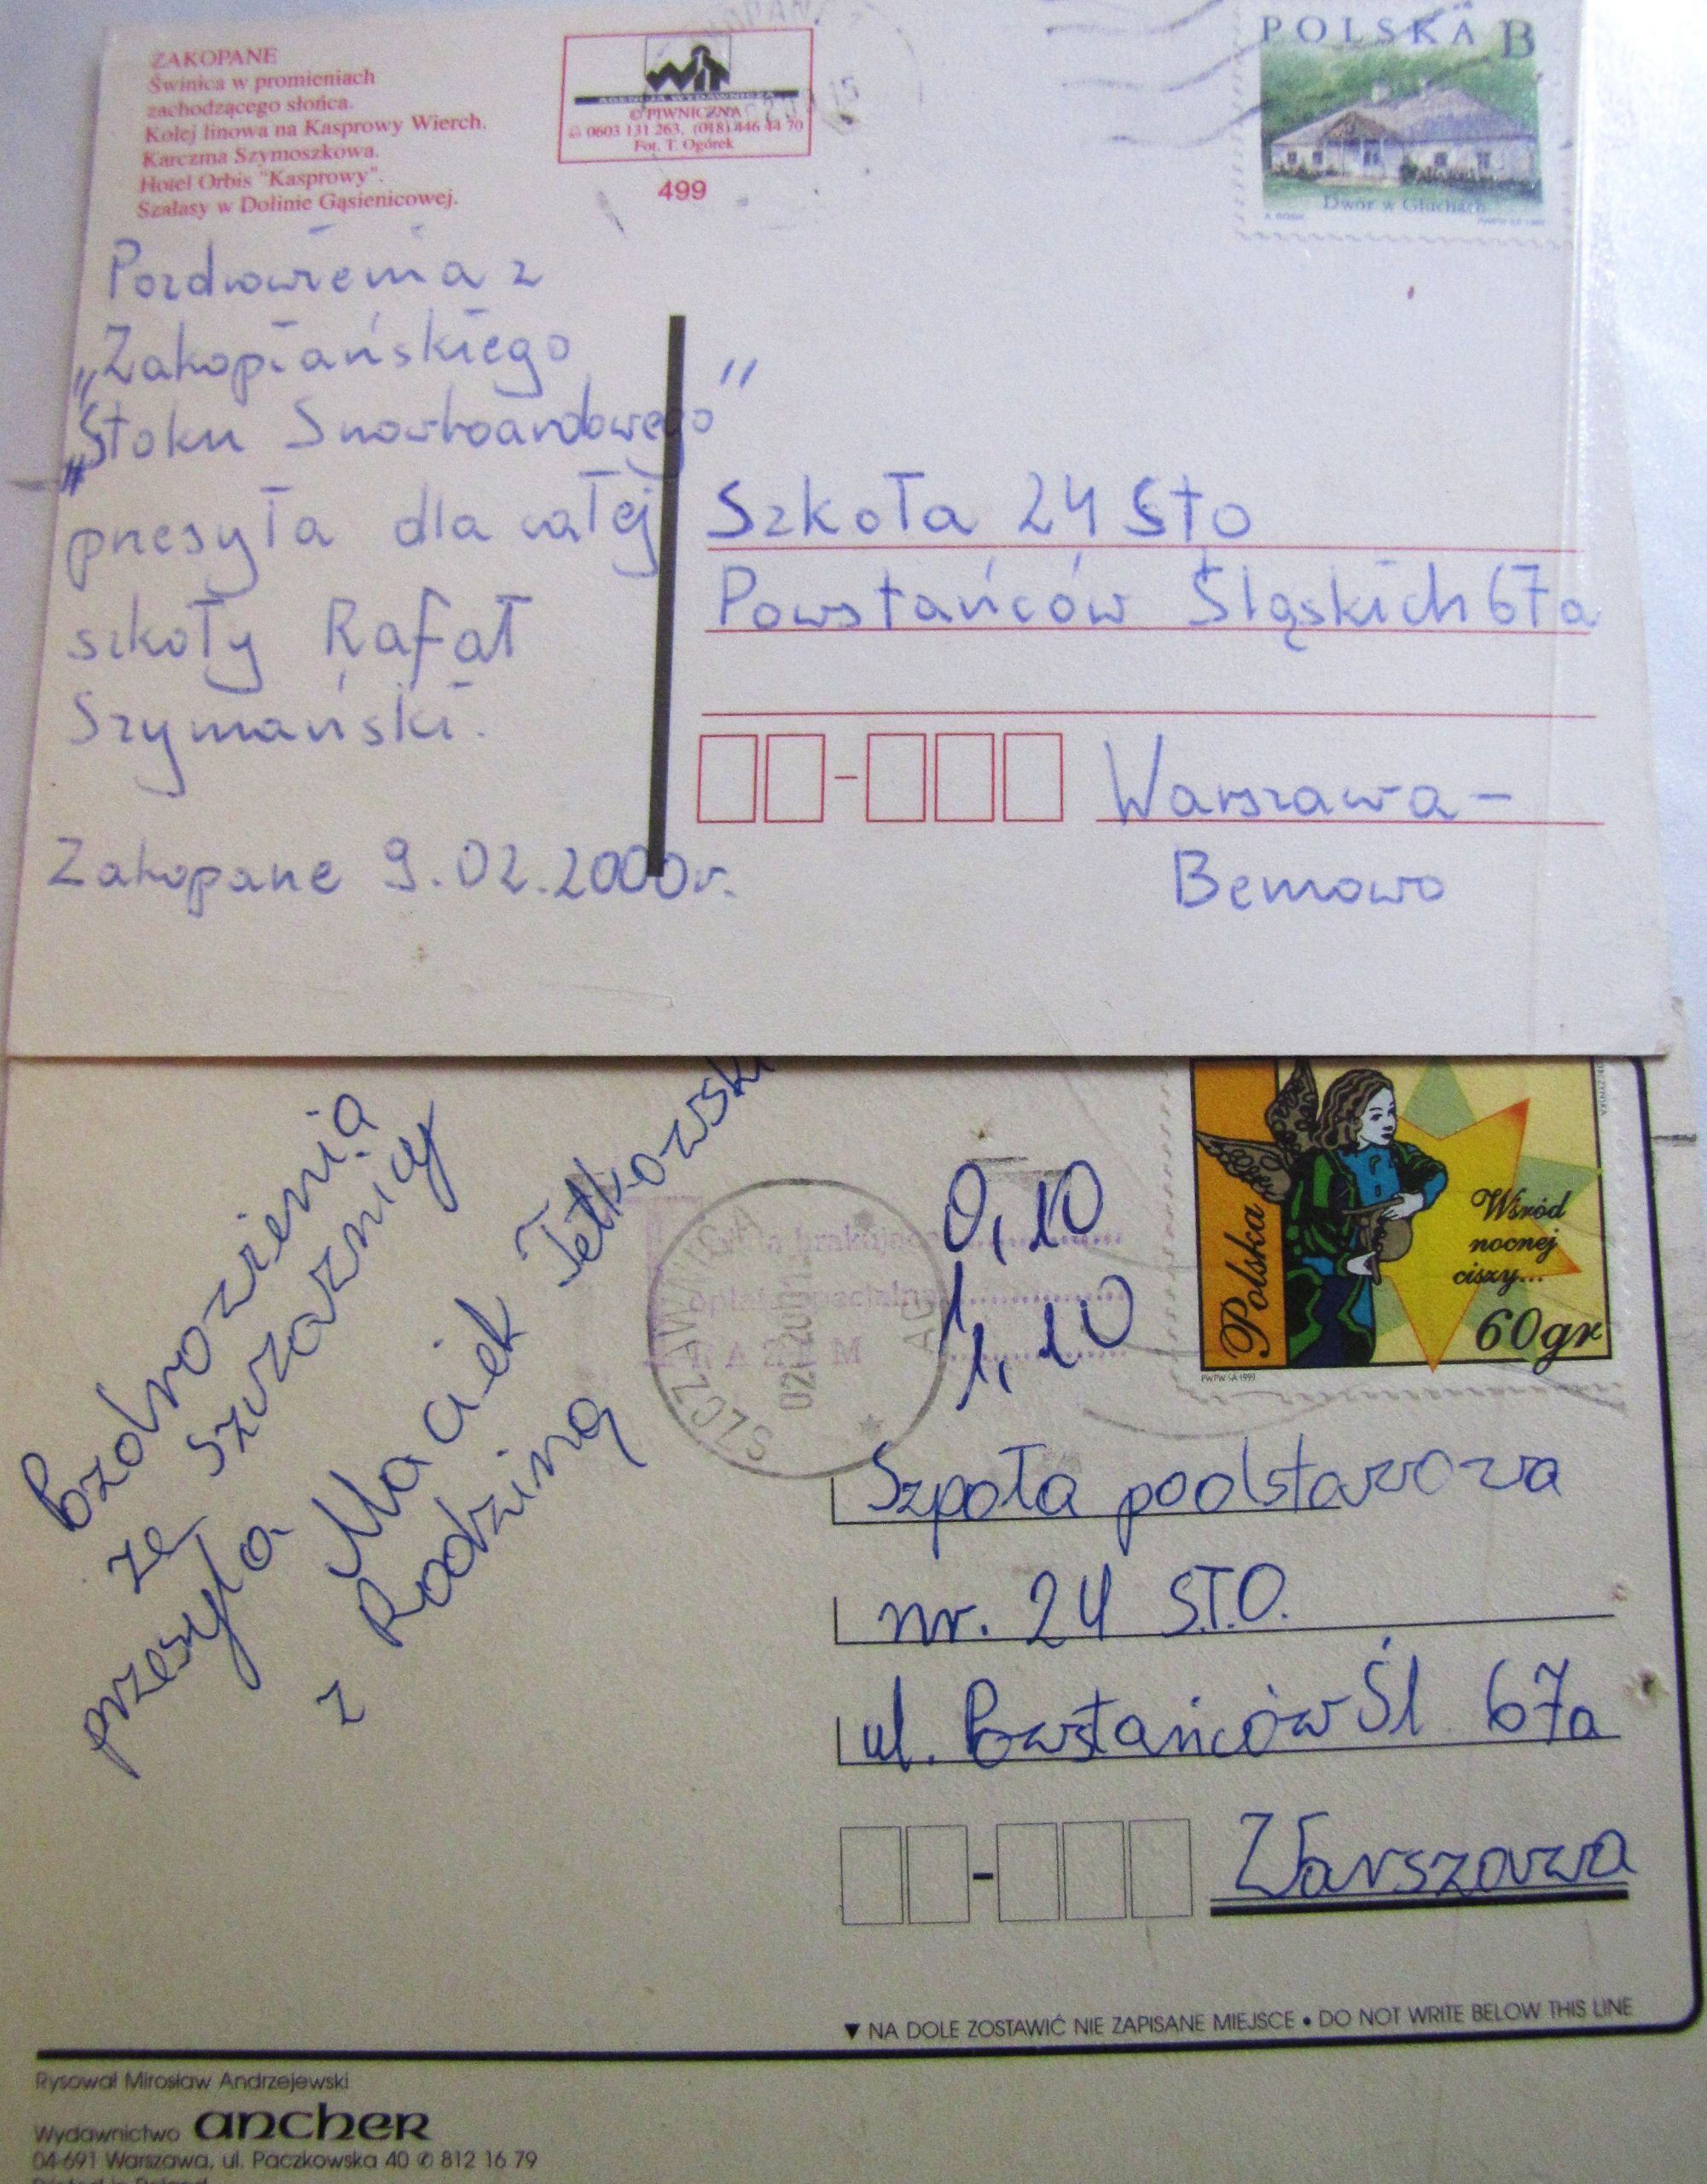 ZAKOPANE
Świnica w promieniach
zachodzącego słońca.
Kolej linowa na Kasprowy Wierch.
Karczma Szymoszkowa.
Hotel Orbis "Kasprowy".
Szałasy w Dolinie Gąsienicowej.
WiT
AGENCJA WYDAWNICZA
© PIWNICZNA
0603 131 263, (018) 446 44 70
Fot. T. Ogórek
499
POLSKA B
Dwór w Głuchach
Pozdrowienia z
„Zakopiańskiego
„Stoku Snowboardowego”
przesyła dla całej
szkoły Rafał
Szymański.
Zakopane 9.02.2000r.
Szkoła 24 Sto
Powstańców Śląskich 67a
Warszawa-
Bemowo
Pozdrowienia
ze Szczawnicy
przesyła
Maciek Tetkowski
z Rodziną
SZCZAWNICA
0,10
1,10
Polska
Wśród
nocnej
ciszy...
60gr
PWPW SA 1999
Szpoła podstawowa
nr. 24 S.T.O.
ul. Powstańców Śl 67a
Warszawa
▼ NA DOLE ZOSTAWIĆ NIE ZAPISANE MIEJSCE • DO NOT WRITE BELOW THIS LINE
Rysował Mirosław Andrzejewski
Wydawnictwo ancher
04-691 Warszawa, ul. Paczkowska 40 ✆ 812 16 79
Printed in Poland